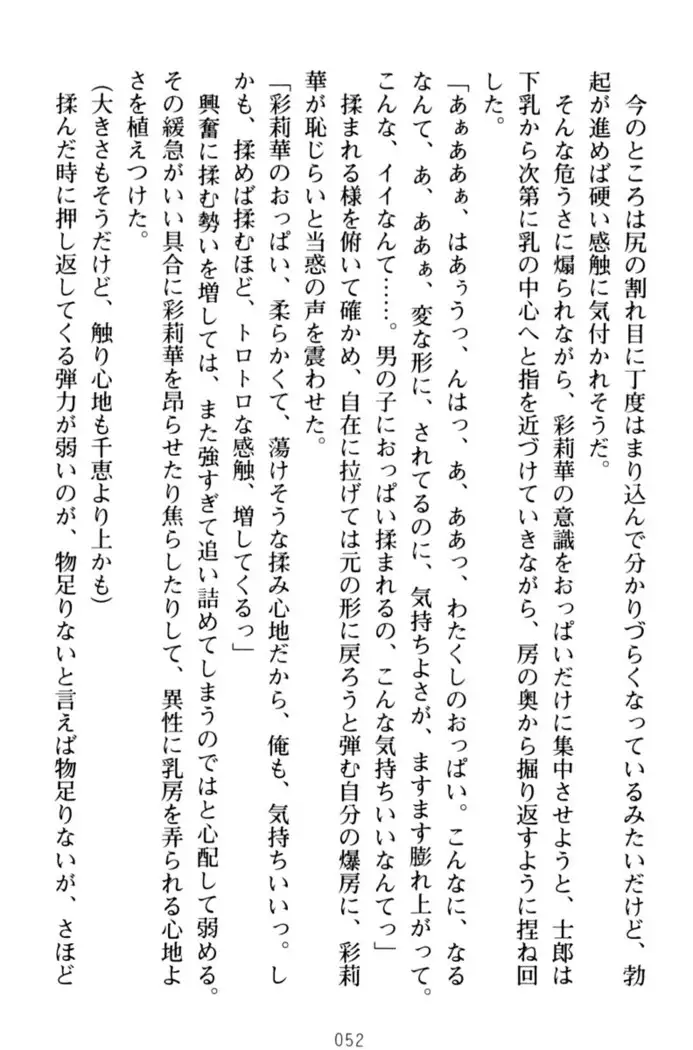 今のところは尻の割れ目に丁度はまり込んで分かりづらくなっているみたいだけど、勃
起が進めば硬い感触に気付かれそうだ。
そんな危うさに煽られながら、彩莉華の意識をおっぱいだけに集中させようと、士郎は
下乳から次第に乳の中心へと指を近づけていきながら、房の奥から掘り返すように捏ね回
した。
「あぁああぁ、はあぅうっ、んはっ、あ、ああっ、わたくしのおっぱい。こんなに、なる
なんて、あ、ああぁ、変な形に、されてるのに、気持ちよさが、ますます膨れ上がって。
こんな、イイなんて……。男の子におっぱい揉まれるの、こんな気持ちいいなんてっ」
揉まれる様を俯いて確かめ、自在に拉げては元の形に戻ろうと弾む自分の爆房に、彩莉
華が恥じらいと当惑の声を震わせた。
「彩莉華のおっぱい、柔らかくて、蕩けそうな揉み心地だから、俺も、気持ちいいっ。し
かも、揉めば揉むほど、トロトロな感触、増してくるっ」
興奮に揉む勢いを増しては、また強すぎて追い詰めてしまうのではと心配して弱める。
その緩急がいい具合に彩莉華を昂らせたり焦らしたりして、異性に乳房を弄られる心地よ
さを植えつけた。
(大きさもそうだけど、触り心地も千恵より上かも)
揉んだ時に押し返してくる弾力が弱いのが、物足りないと言えば物足りないが、さほど
052